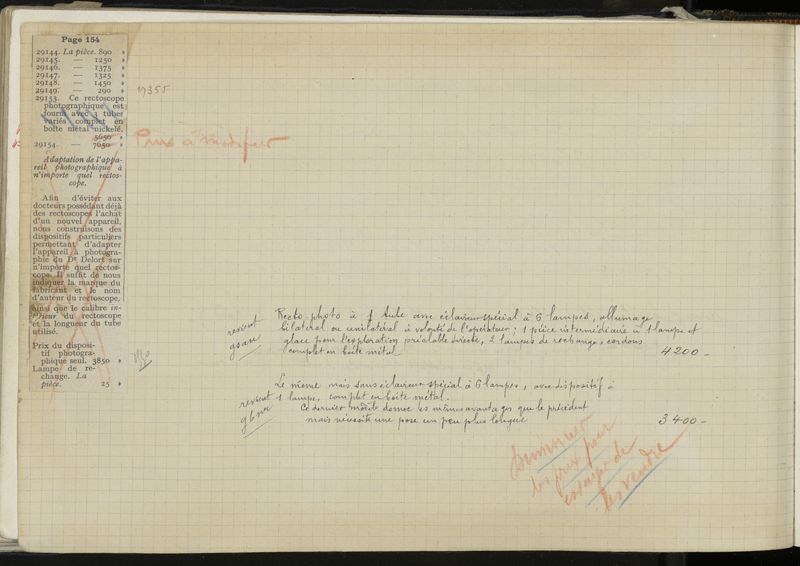 Page 154
29144. La pièce. 890 »
29145. — 1250 »
29146. — 1375 »
29147. — 1325 »
29148. — 1450 »
29149. — 290 »
29153. Ce rectoscope
photographique est
fourni avec 3 tubes
variés complet en
boîte métal nickelé.
5650 »
29154. — 7650 »
Adaptation de l'appa-
reil photographique à
n'importe quel rectos-
cope.
Afin d'éviter aux
docteurs possédant déjà
des rectoscopes l'achat
d'un nouvel appareil,
nous construisons des
dispositifs particuliers
permettant d'adapter
l'appareil à photogra-
phie du Dr Delort sur
n'importe quel rectos-
cope. Il suffit de nous
indiquer la marque du
fabricant et le nom
d'auteur du rectoscope,
ainsi que le calibre in-
térieur du rectoscope
et la longueur du tube
utilisé.
Prix du disposi-
tif photogra-
phique seul. 3850 »
Lampe de re-
change. La
pièce. 25 »
19355
Prix à modifier
Recto photo à 1 tube avec éclaireur spécial à 6 lampes, allumage
bilatéral ou unilatéral à volonté de l'opérateur ; 1 pièce intermédiaire à 1 lampe et
glace pour l'exploration préalable directe, 2 lampes de rechange, cordons
complet en boîte métal 4200 -
revient
Le même mais sans éclaireur spécial à 6 lampes, avec dispositif à
1 lampe, complet en boîte métal.
Ce dernier modèle donne les mêmes avantages que le précédent
mais nécessite une pose un peu plus longue 3400 -
revient
Diminuer
les prix pour
essayer de
les vendre